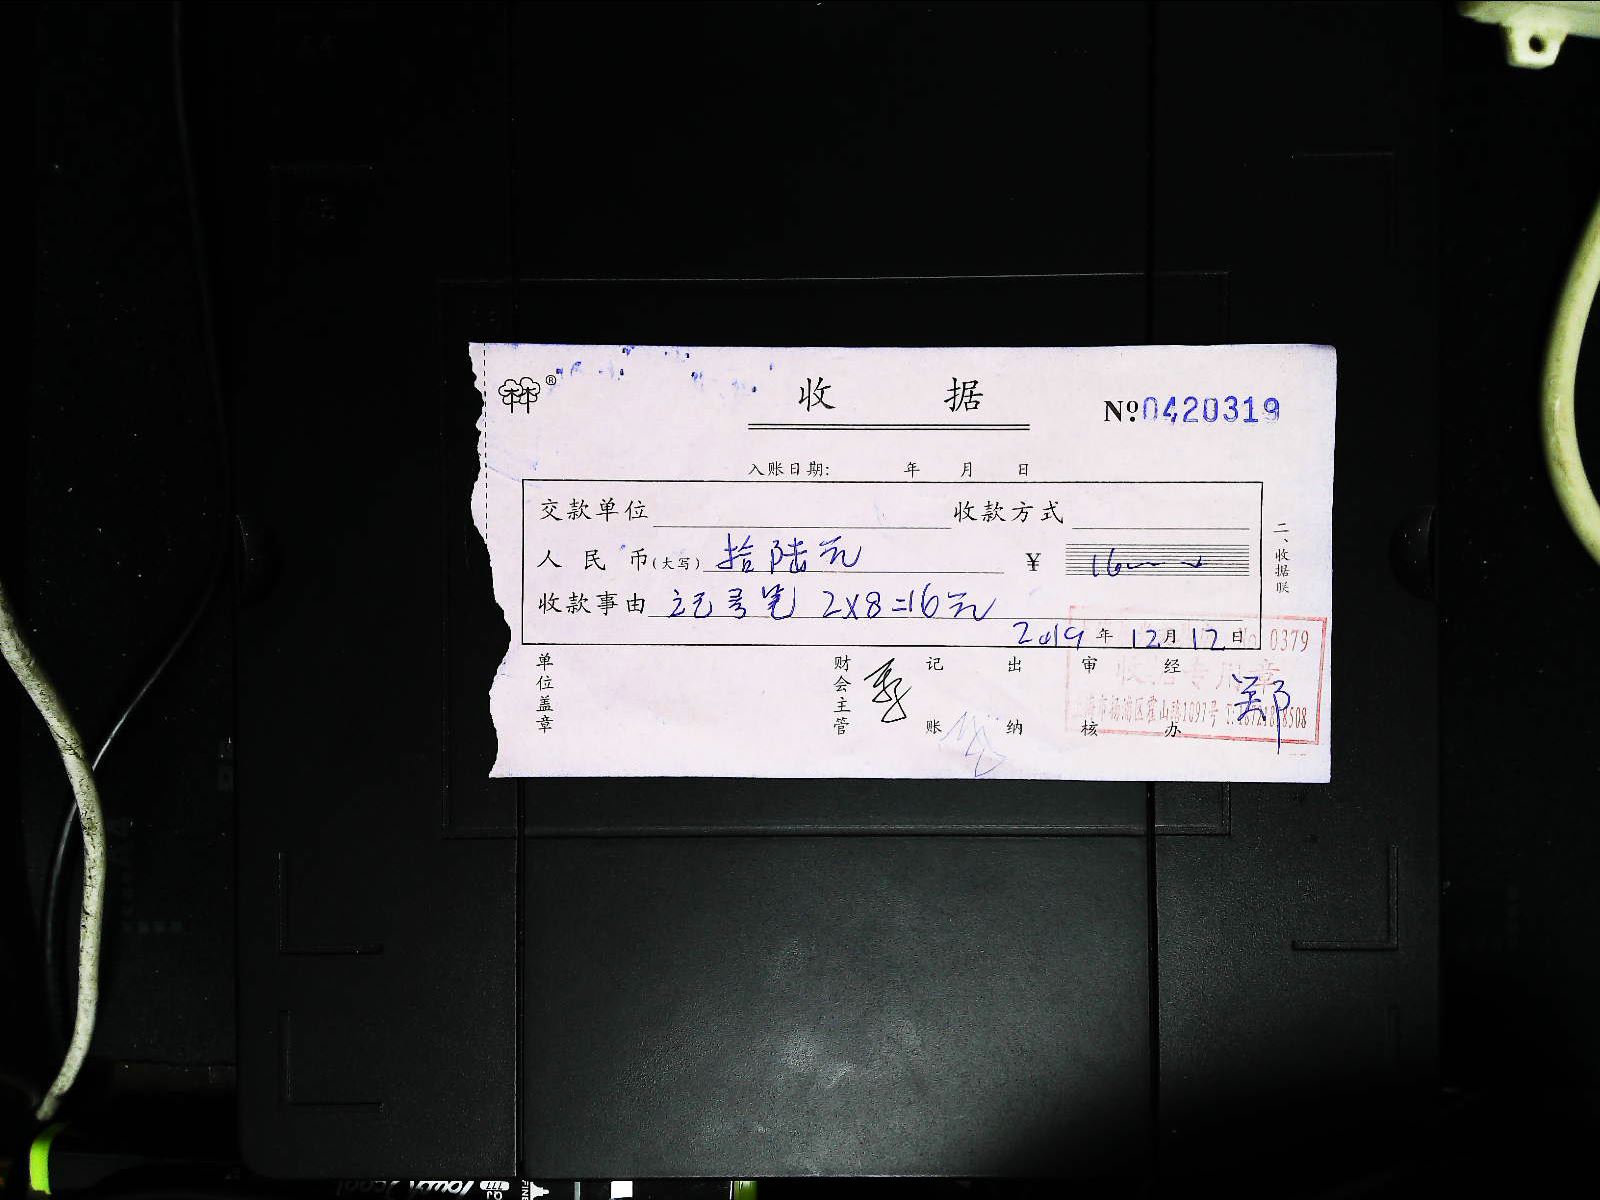 收 据
®
№0420319
入账日期: 年 月 日
交款单位 收款方式
人民币(大写) 拾陆元 ¥ 16
收款事由 记号笔 2x8=16元
2019 年 12 月 12 日
二、收据联
单位盖章 财会主管 记账 出纳 审核 经办 郑
No 0379
收据专用章
市杨浦区霍山路1097号